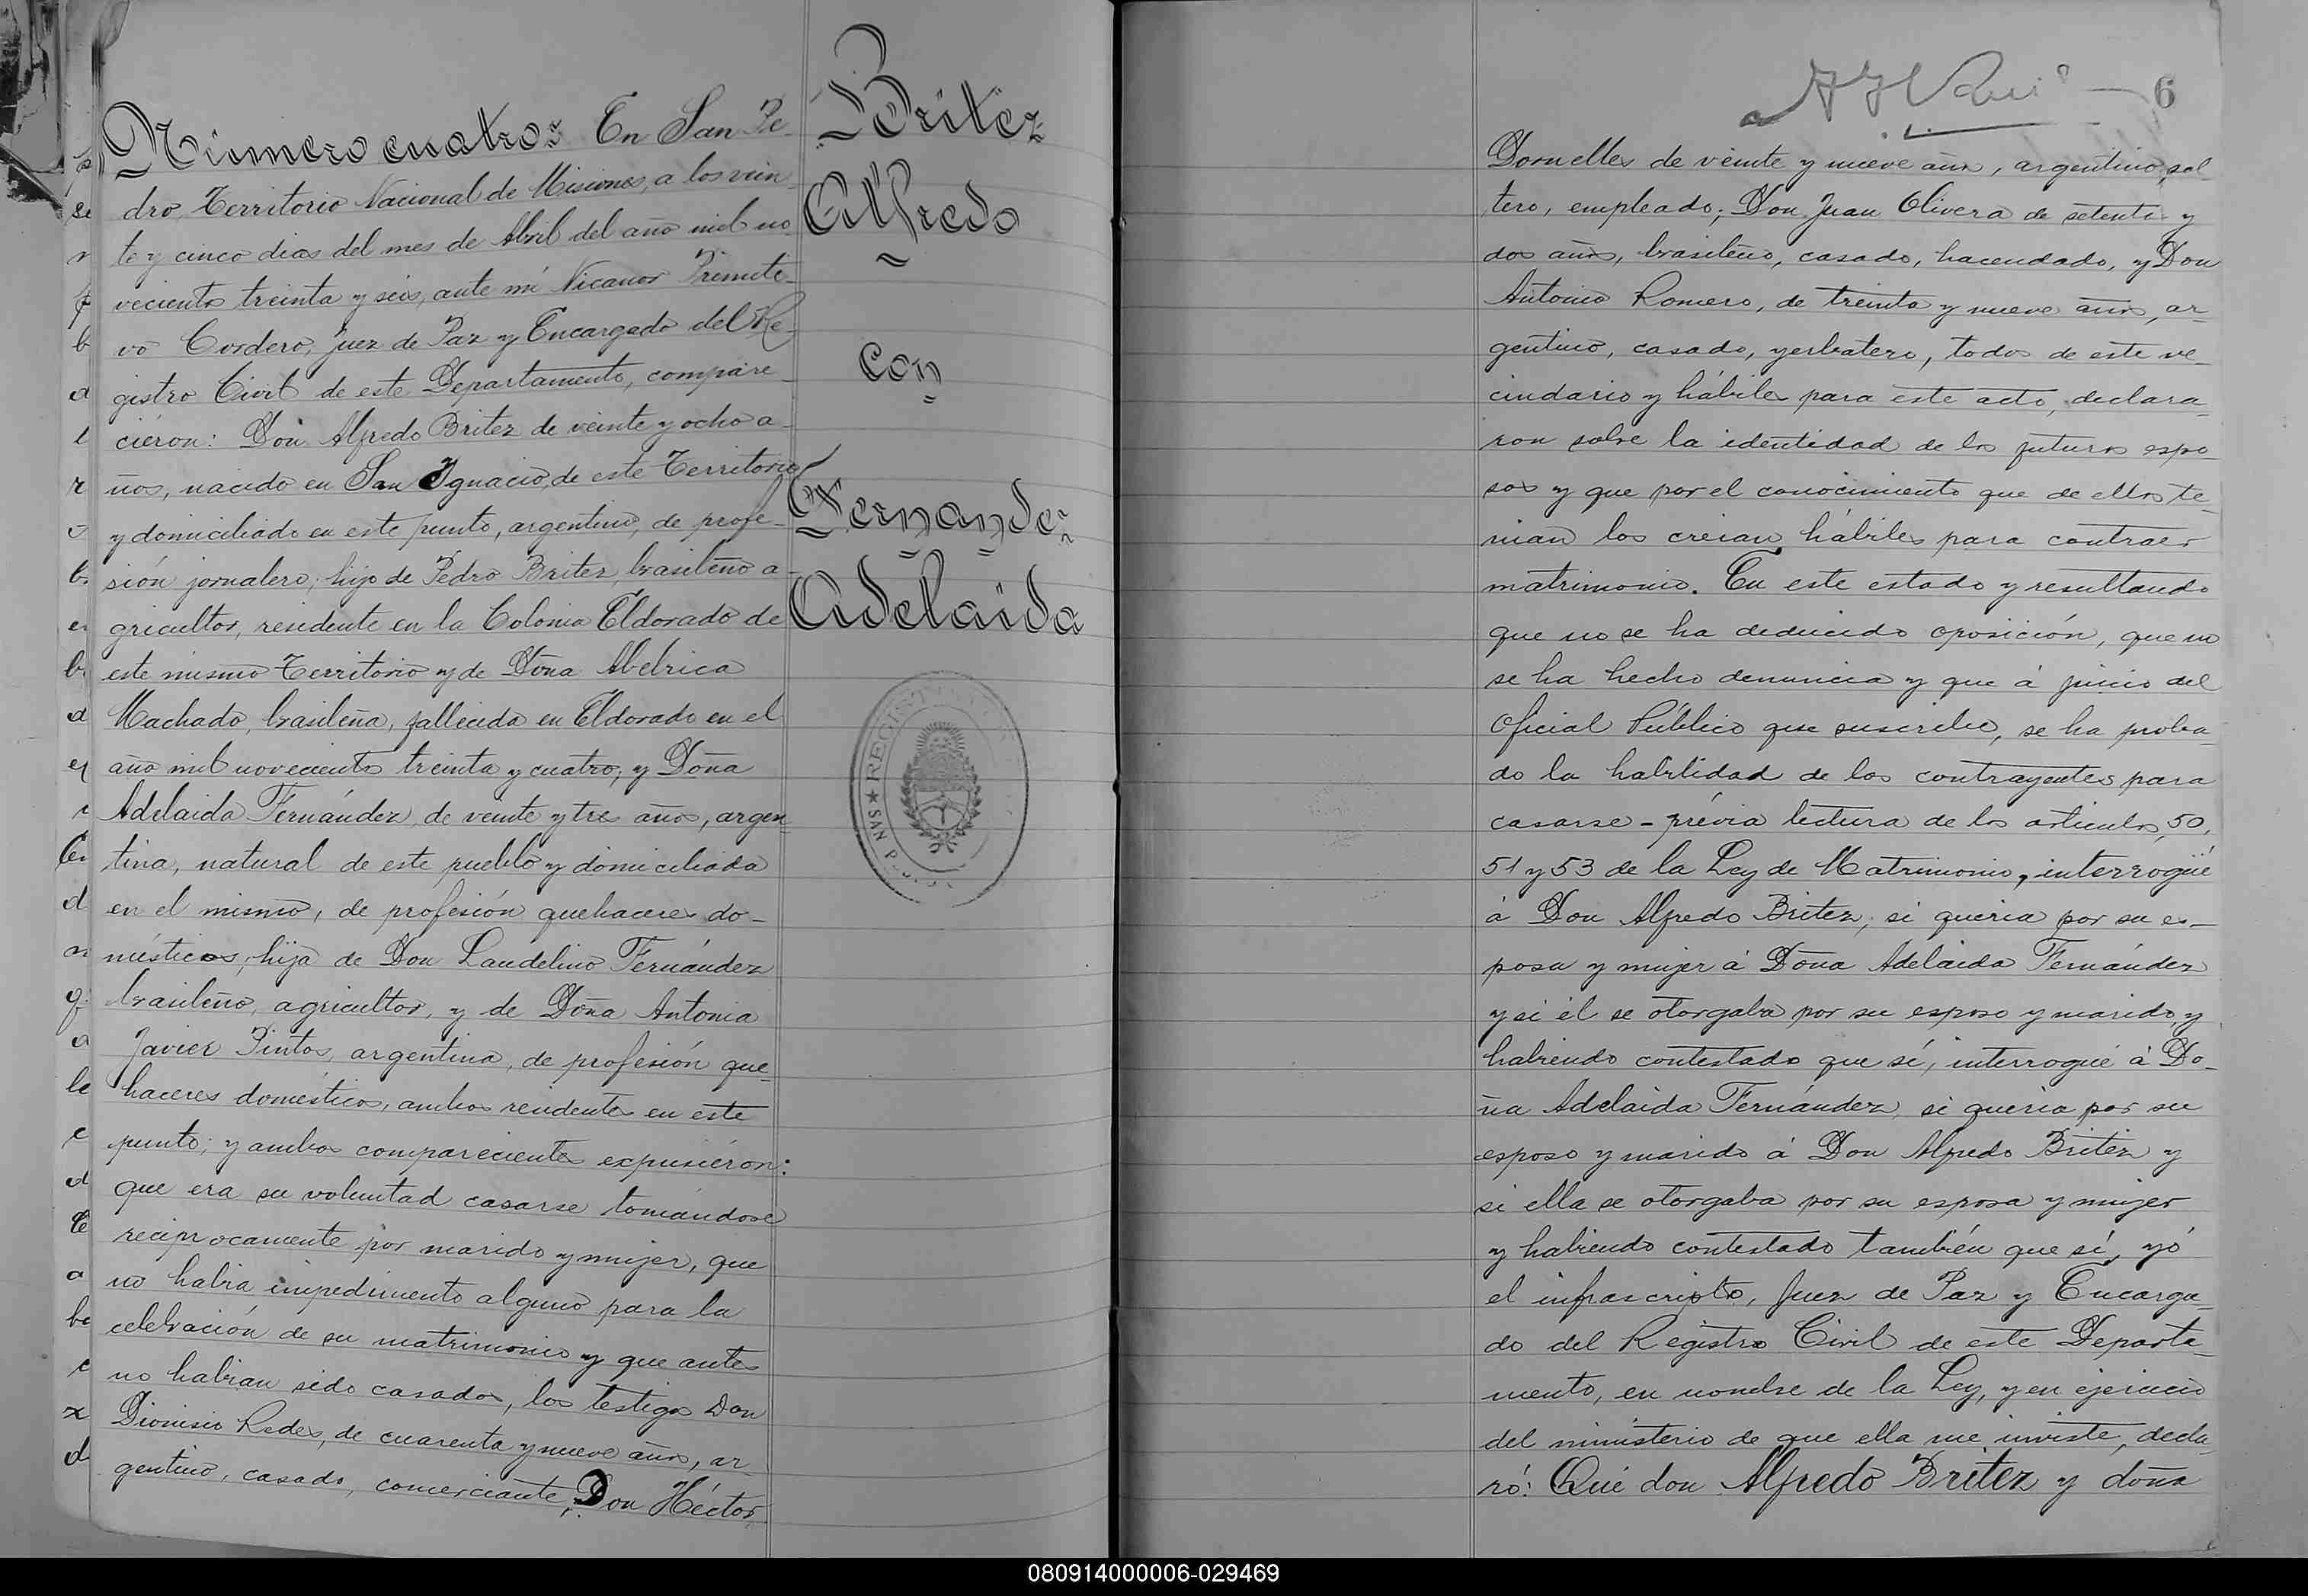 Número cuatro: En San Pe-
dro, Territorio Nacional de Misiones, a los vein-
te y cinco dias del mes de Abril del año mil no-
vecientos treinta y seis, ante mí Nicanor Primiti-
vo Cordero, Juez de Paz y Encargado del Re-
gistro Civil de este Departamento, compare-
ciéron: Don Alfredo Britez de veinte y ocho a-
ños, nacido en San Ignacio, de este Territorio
y domiciliado en este punto, argentino, de profe-
sión jornalero; hijo de Pedro Britez, brasileño a-
gricultor, residente en la Colonia Eldorado de
este mismo Territorio y de Doña Abelrica
Machado, brasileña, fallecida en Eldorado en el
año mil novecientos treinta y cuatro; y Doña
Adelaida Fernández, de veinte y tres años, argen-
tina, natural de este pueblo y domiciliada
en el mismo, de profesión quehaceres do-
mésticos, hija de Don Laudelino Fernández
brasileño, agricultor, y de Doña Antonia
Javier Pintos, argentina, de profesión que-
haceres domésticos, ambos residentes en este
punto; y ambos comparecientes expusiéron:
que era su voluntad casarse tomándose
reciprocamente por marido y mujer, que
no habia impedimento alguno para la
celebración de su matrimonio y que antes
no habian sido casados, los testigos Don
Dionisio Redes, de cuarenta y nueve años, ar-
gentino, casado, comerciante, Don Héctor
Britez
Alfredo
con
Fernandez
Adelaida
★ REGIST
SAN P
6
Dornelles de veinte y nueve años, argentino, sol
tero, empleado; Don Juan Olivera de setenta y
dos años, brasileño, casado, hacendado, y Don
Antonio Romero, de treinta y nueve años, ar-
gentino, casado, yerbatero, todos de este ve-
cindario y hábiles para este acto, declara-
ron sobre la identidad de los futuros espo-
sos y que por el conocimiento que de ellos te-
nian los creian hábiles para contraer
matrimonio. En este estado y resultando
que no se ha deducido oposición, que no
se ha hecho denuncia y que á juicio del
Oficial Público que suscribe, se ha proba-
do la habilidad de los contrayentes para
casarse - prévia lectura de los articulos, 50,
51 y 53 de la Ley de Matrimonio, interrogüé
á Don Alfredo Britez, si queria por su es-
posa y mujer á Doña Adelaida Fernández
y si él se otorgaba por su esposo y marido, y
habiendo contestado que sí, interrogué á Do-
ña Adelaida Fernández, si queria por su
esposo y marido á Don Alfredo Britez y
si ella se otorgaba por su esposa y mujer
y habiendo contestado también que sí, yó
el infrascripto, Juez de Paz y Encarga-
do del Registro Civil de este Departa-
mento, en nombre de la Ley, y en ejercicio
del ministerio de que ella me inviste, decla-
ró: Que don Alfredo Britez y doña
080914000006-029469